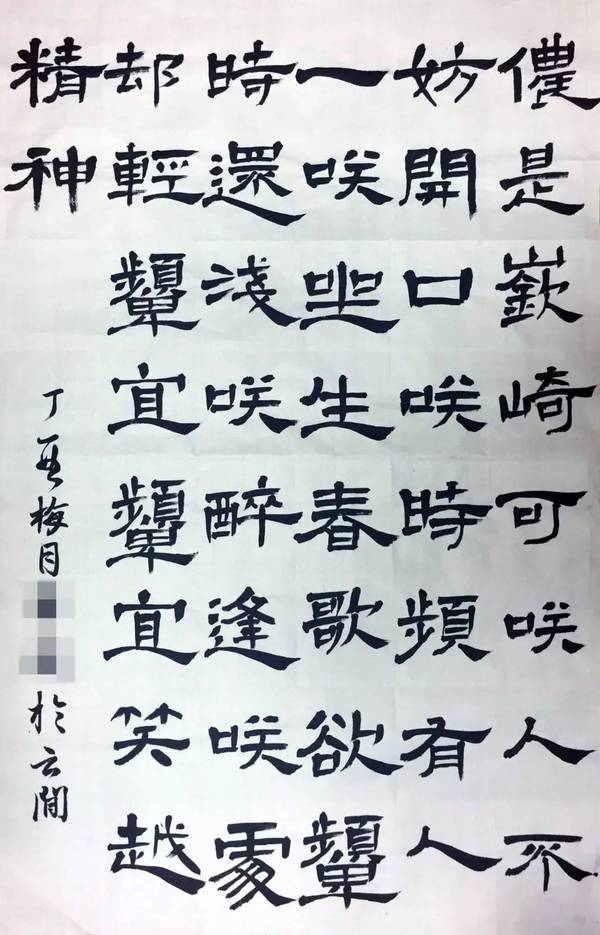 儂是嶔崎可咲人不
妨開口咲時頻有人
一咲坐生春歌欲顰
時還淺咲醉逢咲處
却輕顰宜顰宜笑越
精神
丁梅月
於云間